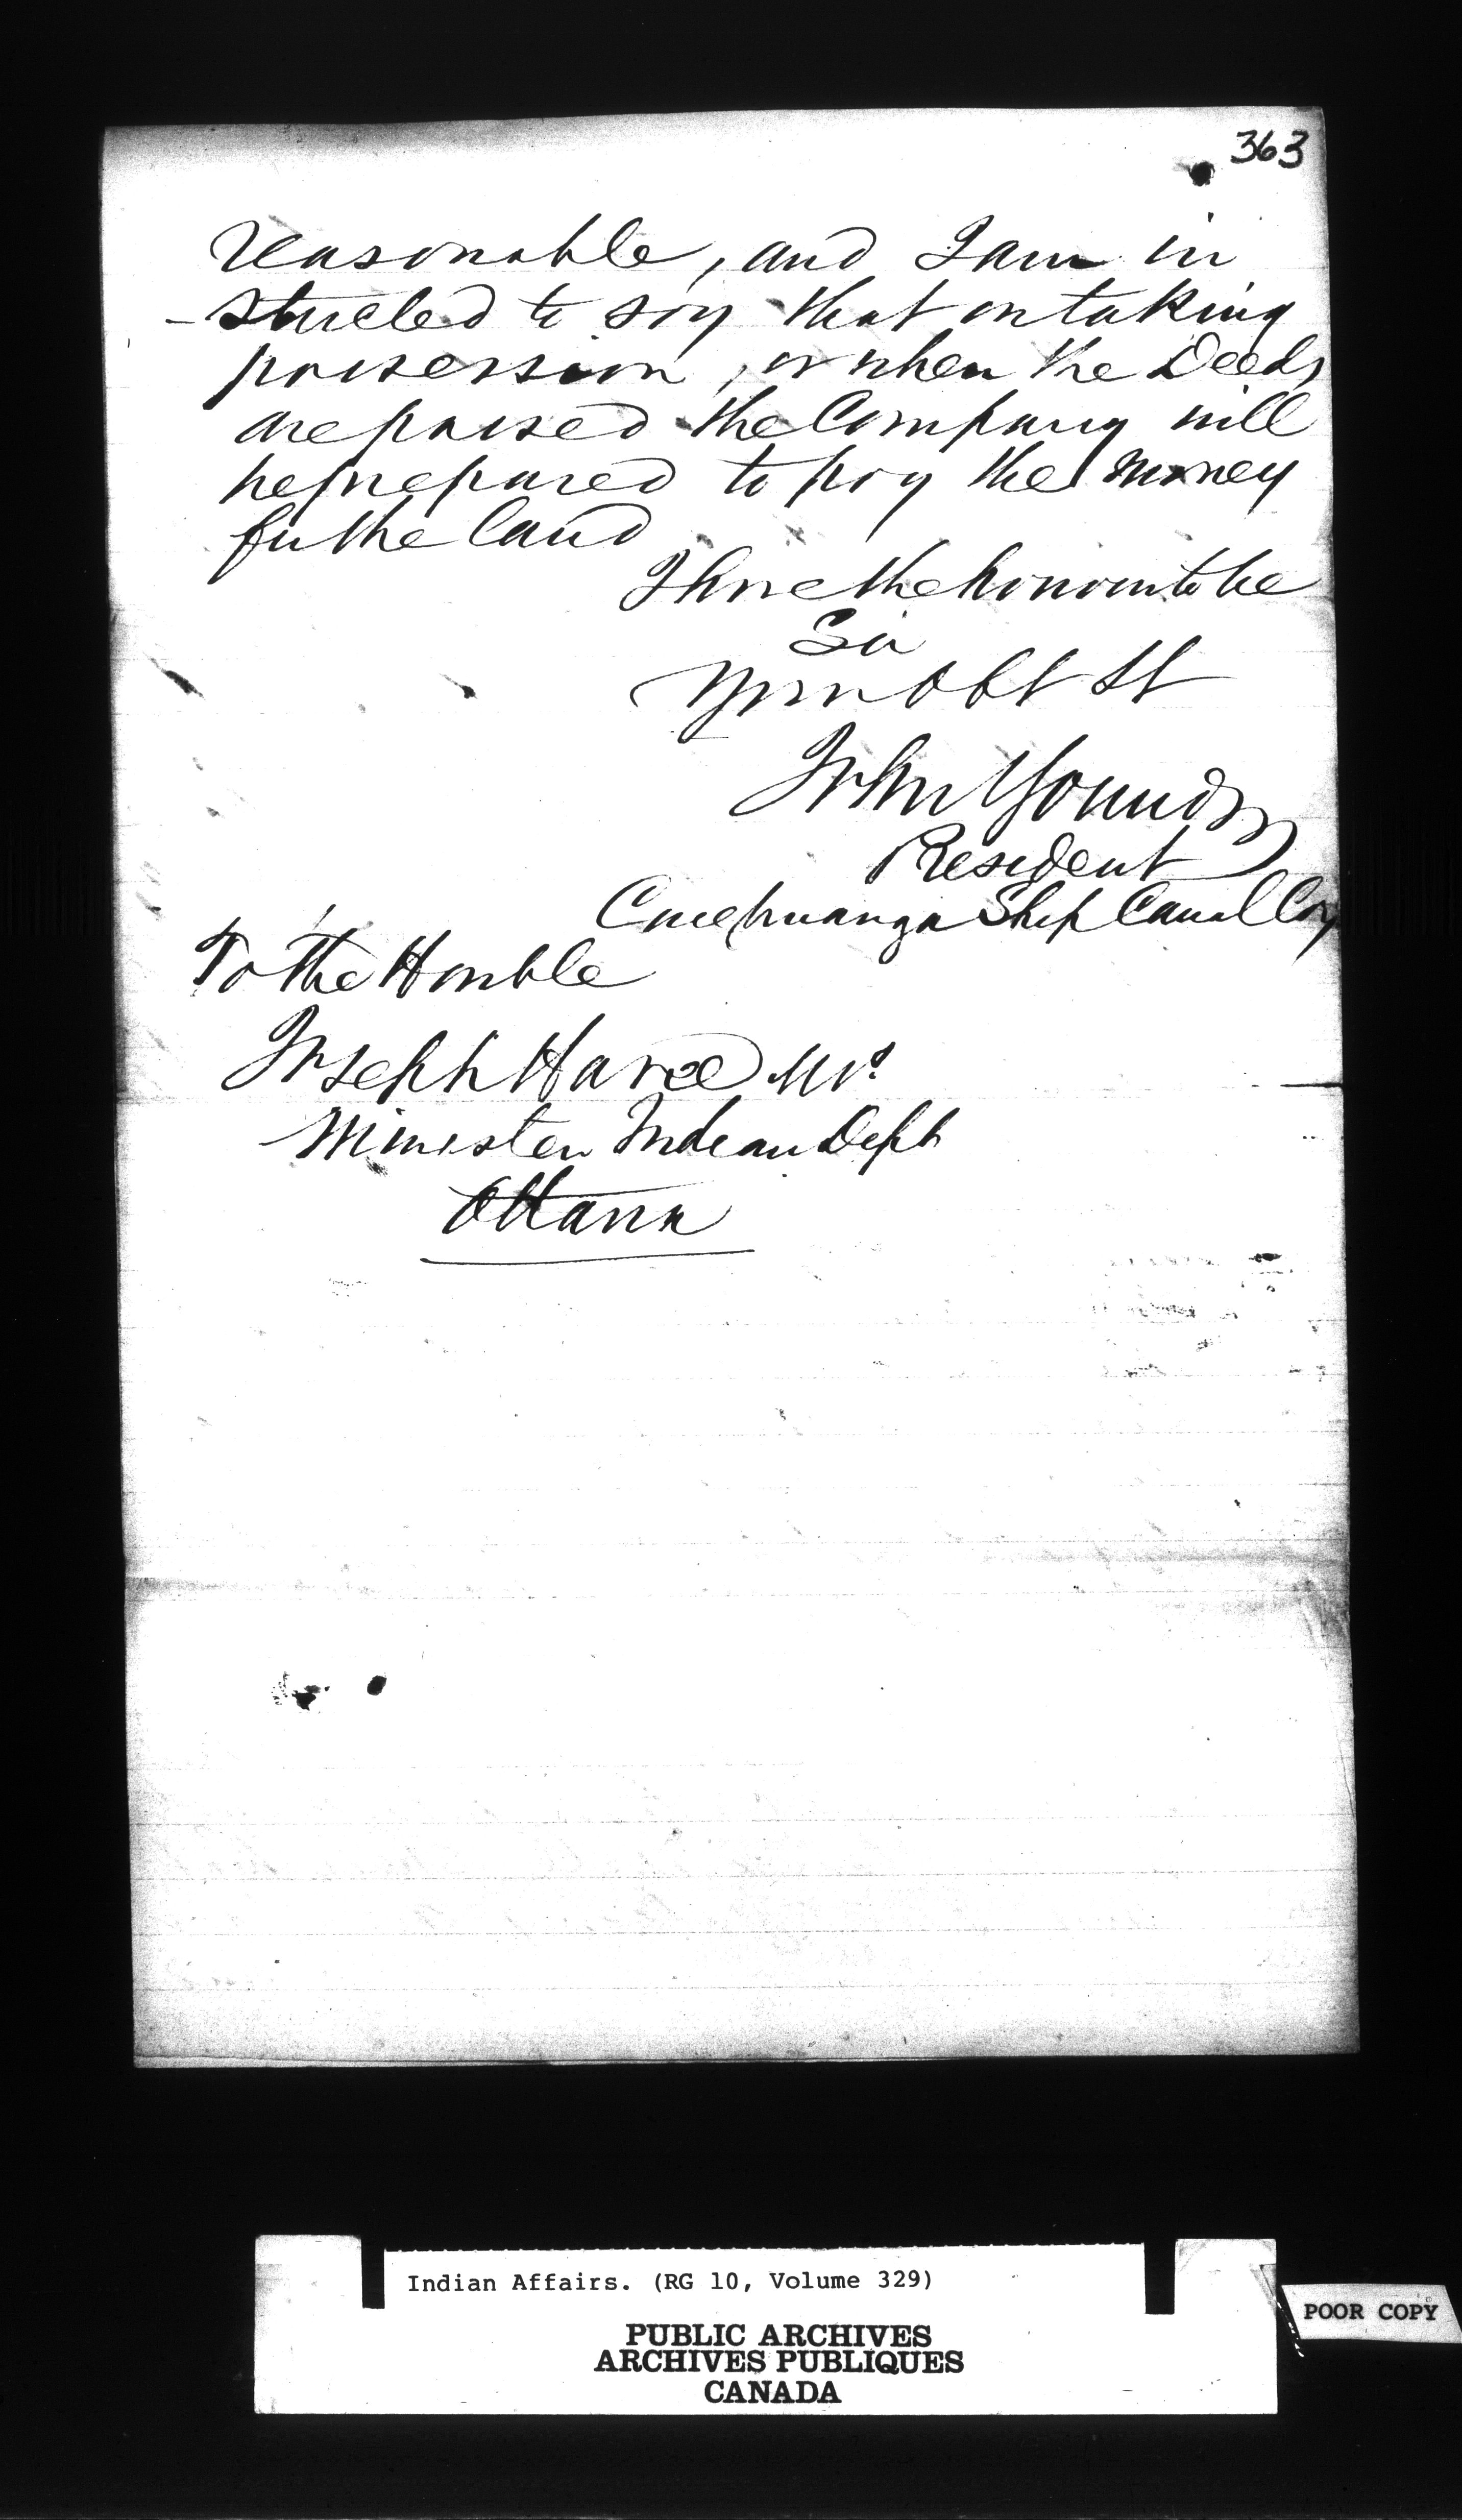 363
reasonable, and I am in
-structed to say that on taking
possession, or when the Deeds
are passed the Company will
be prepared to pay the money
for the land
I have the honour to be
Sir
Your Obt St
John Young
President
Caughnawaga Ship Canal Coy
To the Honble
Joseph Howe
Minister Indian Dept
Ottawa
Indian Affairs. (RG 10, Volume 329)
POOR COPY
PUBLIC ARCHIVES
ARCHIVES PUBLIQUES
CANADA